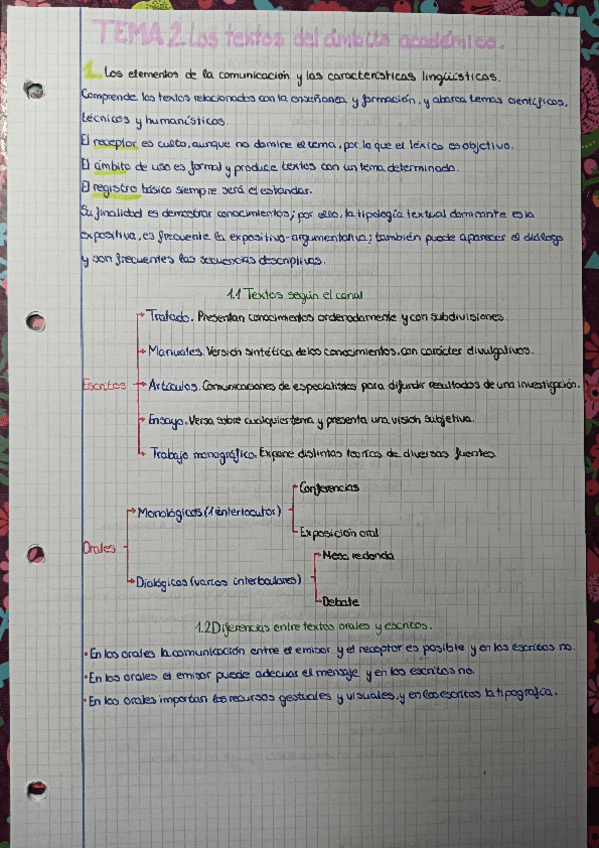 TEMA 2. Los textos del ámbito académico.
1. Los elementos de la comunicación y las características lingüísticas.
Comprende los textos relacionados con la enseñanza y formación, y abarca temas científicos,
técnicos y humanísticos.
El receptor es culto, aunque no domine el tema, por lo que el léxico es objetivo.
El ámbito de uso es formal y produce textos con un tema determinado.
El registro básico siempre será el estándar.
Su finalidad es demostrar conocimientos; por ello, la tipología textual dominante es la
expositiva, es frecuente la expositivo-argumentativa; también puede aparecer el diálogo
y son frecuentes las secuencias descriptivas.
1.1 Textos según el canal
Escritos
Tratado. Presentan conocimientos ordenadamente y con subdivisiones.
Manuales. Versión sintética de los conocimientos, con carácter divulgativos.
Artículos. Comunicaciones de especialistas para difundir resultados de una investigación.
Ensayo. Versa sobre cualquier tema y presenta una visión subjetiva.
Trabajo monográfico. Expone distintas teorías de diversas fuentes.
Orales
Monológicos (1 interlocutor)
Conferencias
Exposición oral
Dialógicos (varios interlocutores)
Mesa redonda
Debate
1.2 Diferencias entre textos orales y escritos.
· En los orales la comunicación entre el emisor y el receptor es posible y en los escritos no.
· En los orales el emisor puede adecuar el mensaje y en los escritos no.
· En los orales importan los recursos gestuales y visuales, y en los escritos la tipografía.